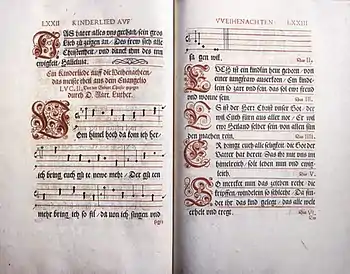 LXXII KINDERLIED AVF
DAS hat er alles uns gethan, sein gros
Lieb zu zeigen an, Des frew sich alle
Christenheit, und danck ihm des inn
ewigkeit, Halleluia.
Ein Kinderlied auff die Weihenachten,
das meiste theil aus dem Euangelio
LVC. II.
durch D. Mart. Luther.
Vom himel hoch da kom ich her
ich bring euch gute newe mehr, Der guten
mehr bring ich so fil, da von ich singen und
VVEIHENACHTEN LXXIII
sagen wil.
EVCH ist ein kindlin heut geborn, von
einer jungfraw auserkorn, Ein kinde-
lein so zart und fein, das sol ewr freud
und wonne sein.
ES ist der Herr Christ unser Got, der
wil Euch füren aus aller not, Er wil
ewr Heiland selber sein, von allen sün-
den machen rein.
ER bringt euch alle seligkeit, die Got der
Vatter hat bereit, Das ihr mit uns im
himelreich, solt leben nun und ewig-
leich.
SO mercket nun das zeichen recht, die
krippfen, windelein so schlechte, Da fin-
det ihr das kind gelegt, das alle welt
erhelt und tregt.